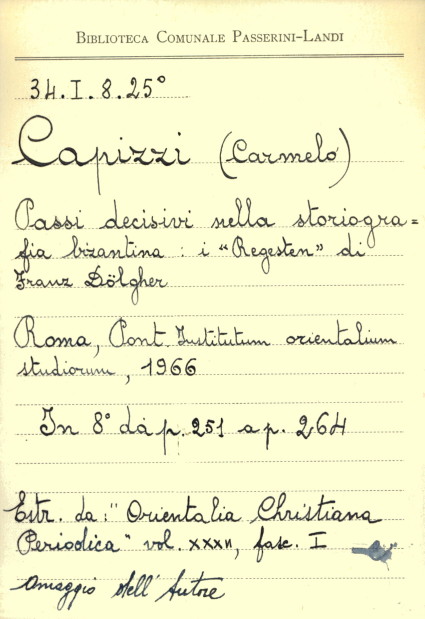 BIBLIOTECA COMUNALE PASSERINI-LANDI
34.I.8.25°
Capizzi (Carmelo)
Passi decisivi nella storiogra=
fia bizantina : i "Regesten" di
Franz Dölgher
Roma, Pont. Institutum orientalium
studiorum, 1966
In 8° da p. 251 a p. 264
Estr. da: "Orientalia Christiana
Periodica" vol. XXXII, fasc. I
Omaggio dell'Autore